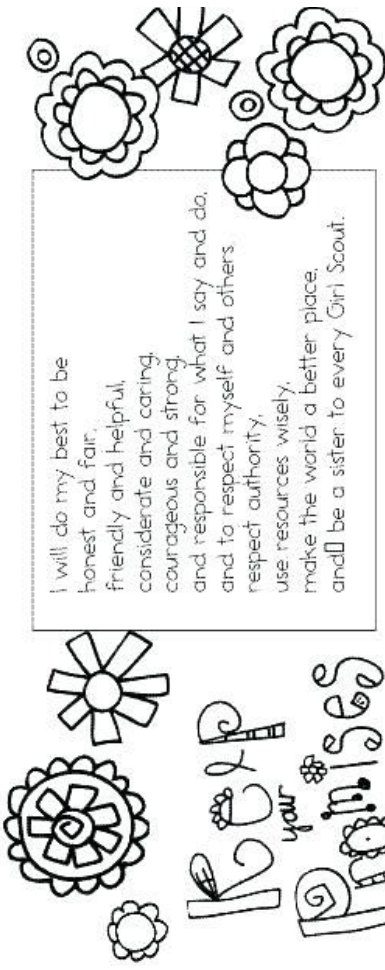 I will do my best to be
honest and fair,
friendly and helpful,
considerate and caring,
courageous and strong,
and responsible for what I say and do,
and to respect myself and others
respect authority,
use resources wisely,
make the world a better place,
and be a sister to every Girl Scout.
Keep
your
Promises